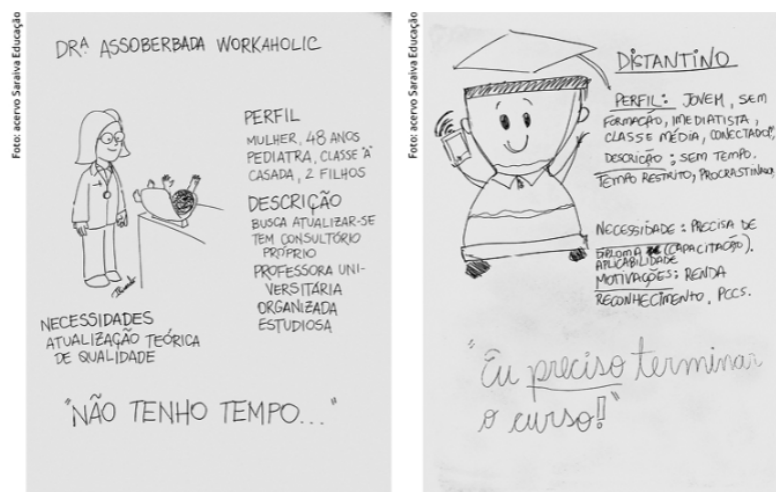 Foto: acervo Saraiva Educação
DRª ASSOBERBADA WORKAHOLIC
PERFIL
MULHER, 48 ANOS
PEDIATRA, CLASSE "A"
CASADA, 2 FILHOS
DESCRIÇÃO
BUSCA ATUALIZAR-SE
TEM CONSULTÓRIO
PRÓPRIO
PROFESSORA UNI-
VERSITÁRIA
ORGANIZADA
ESTUDIOSA
NECESSIDADES
ATUALIZAÇÃO TEÓRICA
DE QUALIDADE
"NÃO TENHO TEMPO..."
Foto: acervo Saraiva Educação
DISTANTINO
PERFIL: JOVEM, SEM
FORMAÇÃO, IMEDIATISTA,
CLASSE MÉDIA, CONECTADO,
DESCRIÇÃO: SEM TEMPO.
TEMPO RESTRITO, PROCRASTINADOR
NECESSIDADE: PRECISA DE
DIPLOMA (CAPACITAÇÃO).
APLICABILIDADE
MOTIVAÇÕES: RENDA
RECONHECIMENTO, PCCS.
"Eu preciso terminar
o curso!!"